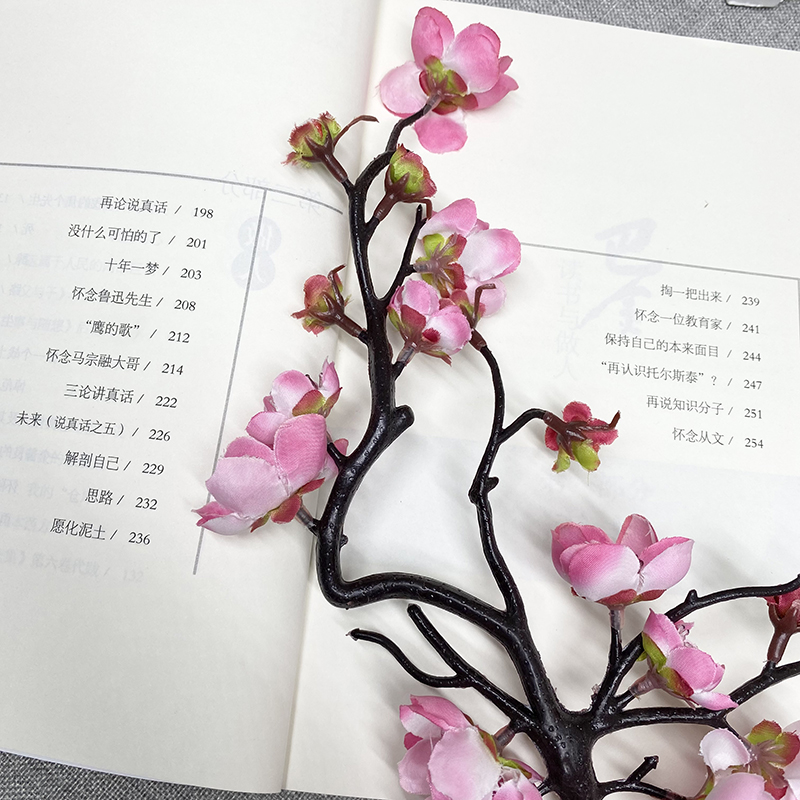 再论说真话 / 198
没什么可怕的了 / 201
十年一梦 / 203
怀念鲁迅先生 / 208
“鹰的歌” / 212
怀念马宗融大哥 / 214
三论讲真话 / 222
未来（说真话之五） / 226
解剖自己 / 229
思路 / 232
愿化泥土 / 236
掏一把出来 / 239
怀念一位教育家 / 241
保持自己的本来面目 / 244
“再认识托尔斯泰”？ / 247
再说知识分子 / 251
怀念从文 / 254